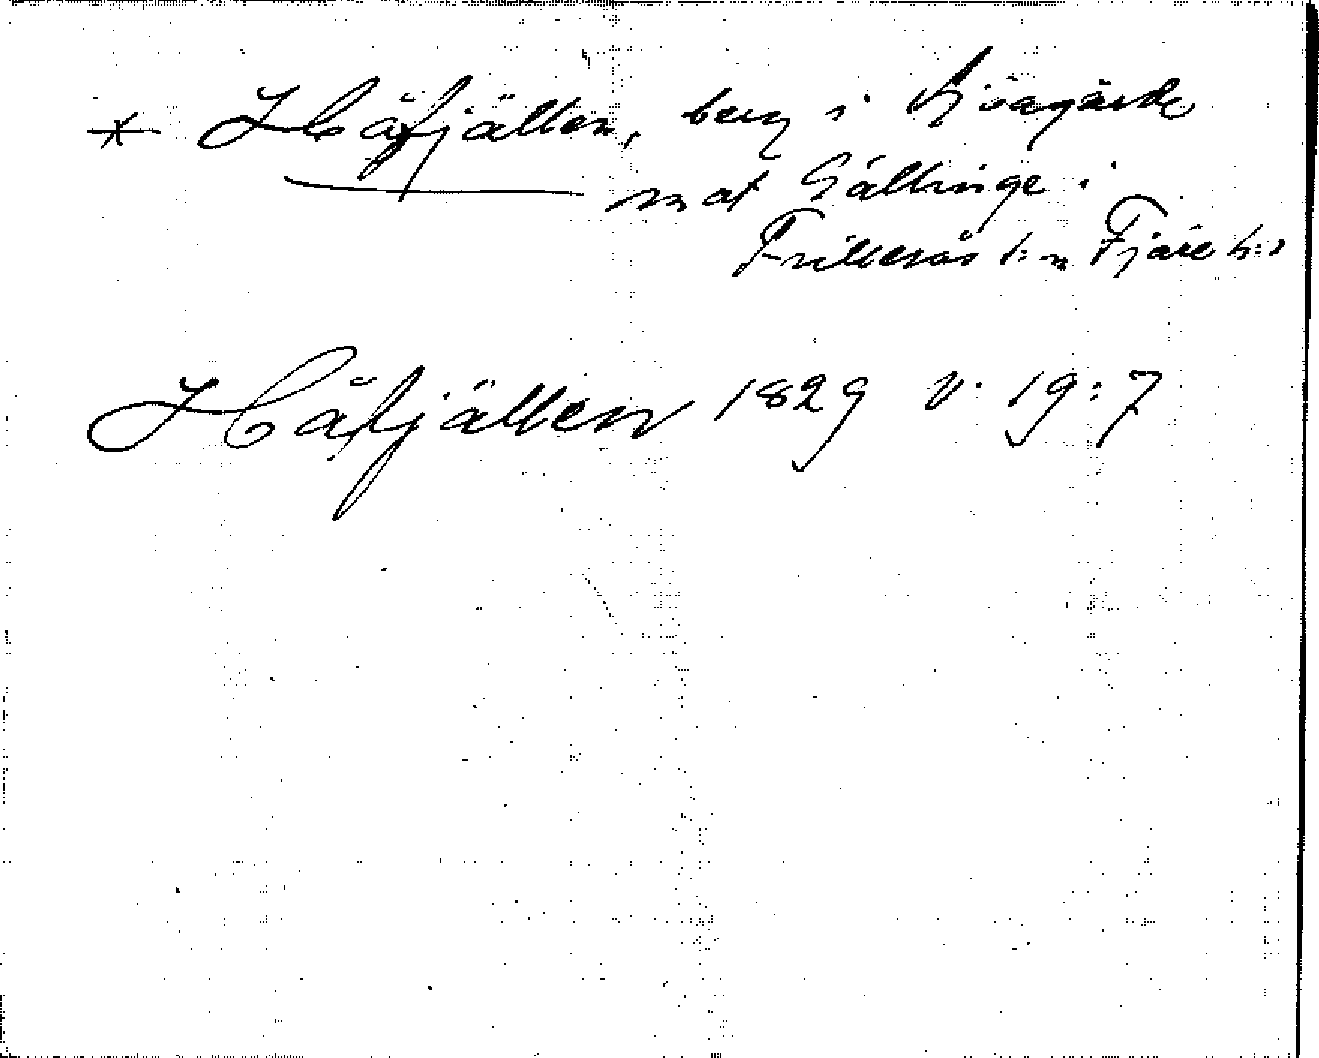 * Håfjällen, berg i Hjöagärde
mot Gällinge i
Frillesås s:n Fjäre h:d
Håfjällen 1829 v. 19:7